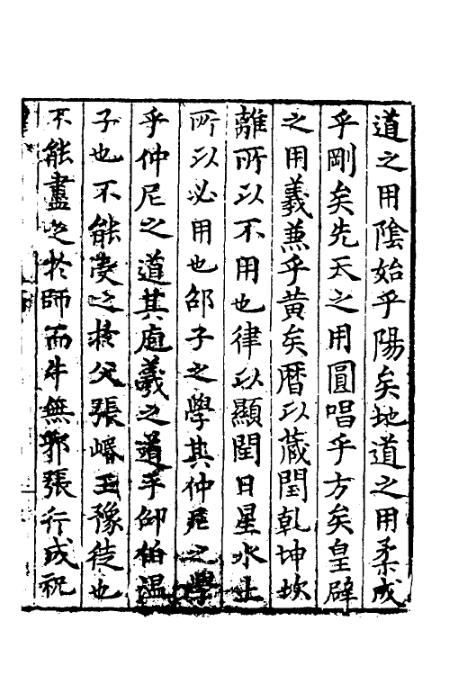 道之用陰始乎陽矣地道之用柔成
乎剛矣先天之用圓唱乎方矣皇辟
之用義兼乎黃矣曆以藏閏乾坤坎
離所以不用也律以顯閏日星水土
所以必用也邵子之學其仲尼之學
乎仲尼之道其庖羲之道乎邵伯溫
子也不能受之於父張㟭王豫徒也
不能盡之於師而牛無邪張行成祝